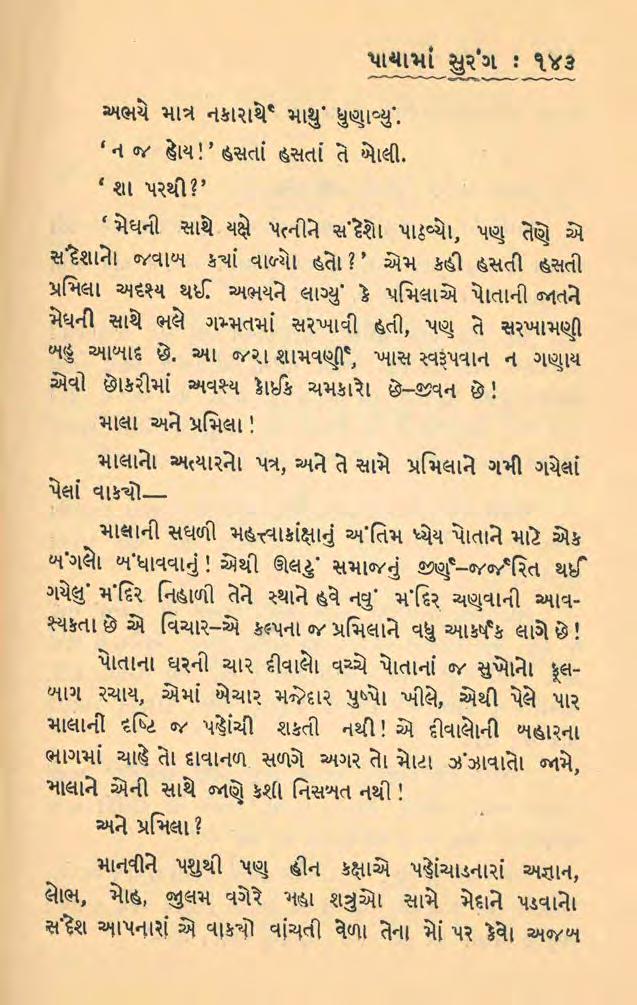 પાયામાં સુરંગ : ૧૪૩
અભયે માત્ર નકારાર્થે માથું ધુણાવ્યું.
‘ન જ હોય!’ હસતાં હસતાં તે બોલી.
‘શા પરથી?’
‘મેઘની સાથે યક્ષે પત્નીને સંદેશો પાઠવ્યો, પણ તેણે એ
સંદેશાનો જવાબ ક્યાં વાળ્યો હતો?’ એમ કહી હસતી હસતી
પ્રમિલા અદૃશ્ય થઈ. અભયને લાગ્યું કે પમિલાએ પોતાની જાતને
મેઘની સાથે ભલે ગમ્મતમાં સરખાવી હતી, પણ તે સરખામણી
બહુ આબાદ છે. આ જરા શામવર્ણી, ખાસ સ્વરૂપવાન ન ગણાય
એવી છોકરીમાં અવશ્ય કોઈક ચમકારો છે–જીવન છે!
માલા અને પ્રમિલા!
માલાનો અત્યારનો પત્ર, અને તે સામે પ્રમિલાને ગમી ગયેલાં
પેલાં વાક્યો—
માલાની સઘળી મહત્ત્વાકાંક્ષાનું અંતિમ ધ્યેય પોતાને માટે એક
બંગલો બંધાવવાનું! એથી ઊલટું સમાજનું જીર્ણ–જર્જરિત થઈ
ગયેલું મંદિર નિહાળી તેને સ્થાને હવે નવું મંદિર ચણવાની આવ-
શ્યકતા છે એ વિચાર–એ કલ્પના જ પ્રમિલાને વધુ આકર્ષક લાગે છે!
પોતાના ઘરની ચાર દીવાલો વચ્ચે પોતાનાં જ સુખોનો ફૂલ-
બાગ રચાય, એમાં બેચાર મજેદાર પુષ્પો ખીલે, એથી પેલે પાર
માલાની દૃષ્ટિ જ પહોંચી શકતી નથી! એ દીવાલોની બહારના
ભાગમાં ચાહે તો દાવાનળ સળગે અગર તો મોટા ઝંઝાવાતો જામે,
માલાને એની સાથે જાણે કશી નિસબત નથી!
અને પ્રમિલા?
માનવીને પશુથી પણ હીન કક્ષાએ પહોંચાડનારાં અજ્ઞાન,
લોભ, મોહ, જુલમ વગેરે મહા શત્રુઓ સામે મેદાને પડવાનો
સંદેશ આપનારાં એ વાક્યો વાંચતી વેળા તેના મોં પર કેવો અજબ